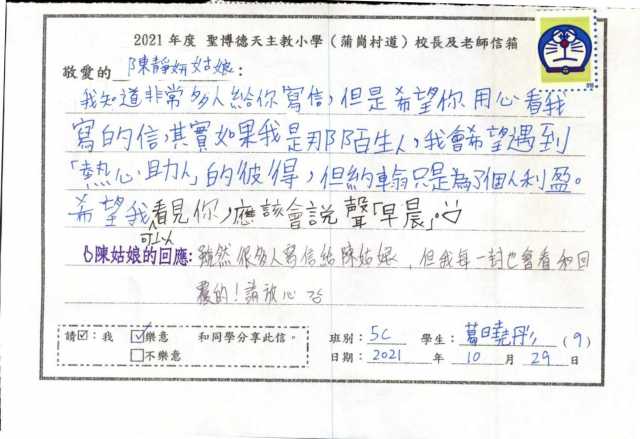 2021 年度 聖博德天主教小學（蒲崗村道）校長及老師信箱
敬愛的 陳靜妍姑娘：
我知道非常多人給你寫信，但是希望你用心看我
寫的信，其實如果我是那陌生人，我會希望遇到
「熱心助人」的彼得，但約翰只是為了個人利益。
希望我看見你，應該會說聲「早晨」。
可以
陳姑娘的回應：雖然很多人寫信給陳姑娘，但我每一封也會看和回
覆的！請放心
請☑：我 ☑樂意 和同學分享此信。
□不樂意
班別：5C 學生：葛曉彤 (9)
日期：2021 年 10 月 29 日